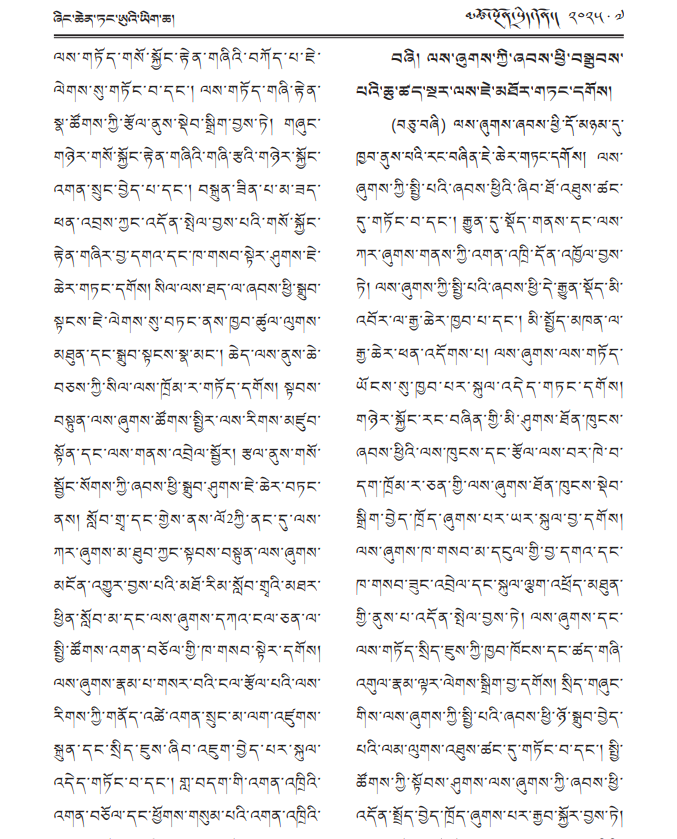 ཞིང་ཆེན་ཏང་ཨུའི་ཡིག་ཆ།
༢༠༢༥ · ༧
ལས་གཏོད་གསོ་སྐྱོང་རྟེན་གཞིའི་བཀོད་པ་ཇེ་
ལེགས་སུ་གཏོང་བ་དང་། ལས་གཏོད་གཞི་རྟེན་
སྣ་ཚོགས་ཀྱི་རྩོལ་ནུས་སྡེབ་སྒྲིག་བྱས་ཏེ། གཞུང་
གཉེར་གསོ་སྐྱོང་རྟེན་གཞིའི་གཞི་རྩའི་གཉེར་སྐྱོང་
འགན་སྲུང་བྱེད་པ་དང་། བསྟུན་ཟིན་པ་མ་ཟད་
ཕན་འབྲས་ཀྱང་འདོན་སྤེལ་བྱས་པའི་གསོ་སྐྱོང་
རྟེན་གཞིར་བྱ་དགའ་དང་ཁ་གསབ་སྟེར་ཤུགས་ཇེ་
ཆེར་གཏང་དགོས། སིལ་ལས་ཐད་ལ་ཞབས་ཕྱི་སྒྲུབ་
སྟངས་ཇེ་ལེགས་སུ་བཏང་ནས་ཁྱབ་ཚུལ་ལུགས་
མཐུན་དང་སྒྲུབ་སྟངས་སྣ་མང་། ཆེད་ལས་ནུས་ཆེ་
བཅས་ཀྱི་སིལ་ལས་ཁྲོམ་ར་གཏོད་དགོས། སྟབས་
བསྟུན་ལས་ཞུགས་ཚོགས་སྤྱིར་ལས་རིགས་མཛུབ་
སྟོན་དང་ལས་གནས་འབྲེལ་སྦྱོར། རྩལ་ནུས་གསོ་
སྦྱོང་སོགས་ཀྱི་ཞབས་ཕྱི་སྒྲུབ་ཤུགས་ཇེ་ཆེར་བཏང་
ནས། སློབ་གྲྭ་དང་གྱེས་ནས་ལོ2ཀྱི་ནང་དུ་ལས་
ཀར་ཞུགས་མ་ཐུབ་ཀྱང་སྟབས་བསྟུན་ལས་ཞུགས་
མངོན་འགྱུར་བྱས་པའི་མཐོ་རིམ་སློབ་གྲྭའི་མཐར་
ཕྱིན་སློབ་མ་དང་ལས་ཞུགས་དཀའ་ངལ་ཅན་ལ་
སྤྱི་ཚོགས་འགན་བཅོལ་གྱི་ཁ་གསབ་སྟེར་དགོས།
ལས་ཞུགས་རྣམ་པ་གསར་བའི་ངལ་རྩོལ་པའི་ལས་
རིགས་ཀྱི་གནོད་འཚེ་འགན་སྲུང་མ་ལག་འཛུགས་
སྐྲུན་དང་སྲིད་ཇུས་ཞིབ་འཇུག་བྱེད་པར་སྐུལ་
འདེད་གཏོང་བ་དང་། གླ་བདག་གི་འགན་འཁྲིའི་
འགན་བཅོལ་དང་ཕྱོགས་གསུམ་པའི་འགན་འཁྲིའི་
བཞི། ལས་ཞུགས་ཀྱི་ཞབས་ཕྱི་བསྒྲུབས་
པའི་ཆུ་ཚད་སྔར་ལས་ཇེ་མཐོར་གཏང་དགོས།
(བཅུ་བཞི) ལས་ཞུགས་ཞབས་ཕྱི་དོ་མཉམ་དུ་
ཁྱབ་ནུས་པའི་རང་བཞིན་ཇེ་ཆེར་གཏང་དགོས། ལས་
ཞུགས་ཀྱི་སྤྱི་པའི་ཞབས་ཕྱིའི་ཞིབ་ཐོ་འཐུས་ཚང་
དུ་གཏོང་བ་དང་། རྒྱུན་དུ་སྡོད་གནས་དང་ལས་
ཀར་ཞུགས་གནས་ཀྱི་འགན་འཁྲི་དོན་འཁྱོལ་བྱས་
ཏེ། ལས་ཞུགས་ཀྱི་སྤྱི་པའི་ཞབས་ཕྱི་དེ་རྒྱུན་སྡོད་མི་
འབོར་ལ་རྒྱ་ཆེར་ཁྱབ་པ་དང་། མི་སྤྱོད་མཁན་ལ་
རྒྱ་ཆེར་ཕན་འདོགས་པ། ལས་ཞུགས་ལས་གཏོད་
ཡོངས་སུ་ཁྱབ་པར་སྐུལ་འདེད་གཏང་དགོས།
གཉེར་སྐྱོང་རང་བཞིན་གྱི་མི་ཤུགས་ཐོན་ཁུངས་
ཞབས་ཕྱིའི་ལས་ཁུངས་དང་རྩོལ་ལས་བར་ཁེ་བ་
དག་ཁྲོམ་ར་ཅན་གྱི་ལས་ཞུགས་ཐོན་ཁུངས་སྡེབ་
སྒྲིག་བྱེད་ཁྲོད་ཞུགས་པར་ཡར་སྐུལ་བྱ་དགོས།
ལས་ཞུགས་ཁ་གསབ་མ་དངུལ་གྱི་བྱ་དགའ་དང་
ཁ་གསབ་ཟུང་འབྲེལ་དང་སྐུལ་ལྕག་འཕྲོད་མཐུན་
གྱི་ནུས་པ་འདོན་སྤེལ་བྱས་ཏེ། ལས་ཞུགས་དང་
ལས་གཏོད་སྲིད་ཇུས་ཀྱི་ཁྱབ་ཁོངས་དང་ཚད་གཞི་
འགུལ་རྣམ་ལྟར་ལེགས་སྒྲིག་བྱ་དགོས། སྲིད་གཞུང་
གིས་ལས་ཞུགས་ཀྱི་སྤྱི་པའི་ཞབས་ཕྱི་ཉོ་སྒྲུབ་བྱེད་
པའི་ལམ་ལུགས་འཐུས་ཚང་དུ་གཏོང་བ་དང་། སྤྱི་
ཚོགས་ཀྱི་སྟོབས་ཤུགས་ལས་ཞུགས་ཀྱི་ཞབས་ཕྱི་
འདོན་སྤྲོད་བྱེད་ཁྲོད་ཞུགས་པར་རྒྱབ་སྐྱོར་བྱས་ཏེ།